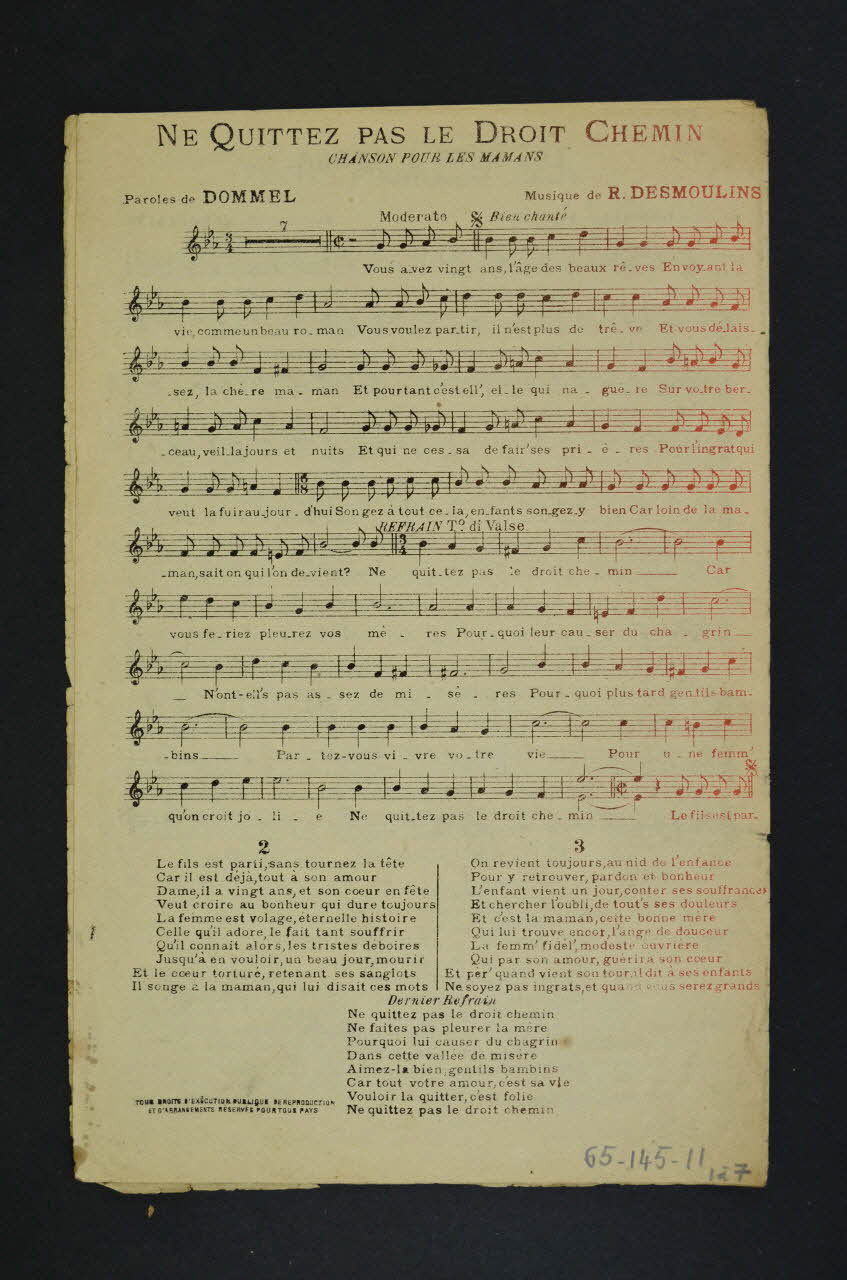 NE QUITTEZ PAS LE DROIT CHEMIN
CHANSON POUR LES MAMANS
Paroles de DOMMEL
Musique de R. DESMOULINS
Moderato Bien chanté
7
Vous a_vez vingt ans, l'âge des beaux rê_ves Envoy_ant la
vie, comme un beau ro_man Vous voulez par_tir, il n'est plus de trê_ve Et vous dé_lais_
_sez, la chè_re ma_man Et pourtant c'est ell', el_le qui na_gue_re Sur vo_tre ber_
_ceau, veil_la jours et nuits Et qui ne ces_sa de fair' ses pri_è_res Pour l'ingrat qui
veut la fuir au_jour_d'hui Son gez à tout ce_la, en_fants son_gez_y bien Car loin de la ma_
REFRAIN T° di Valse
_man, sait on qui l'on de_vient? Ne quit_tez pas le droit che_min Car
vous fe_riez pleu_rez vos mè_res Pour_quoi leur cau_ser du cha_grin
N'ont-ell's pas as_sez de mi_sè_res Pour_quoi plus tard gen_tils bam_
_bins Par_tez-vous vi_vre vo_tre vie Pour u_ne femm'
qu'on croit jo_li_e Ne quit_tez pas le droit che_min Le fils est par_
2
Le fils est parti, sans tournez la tête
Car il est déjà, tout à son amour
Dame, il a vingt ans, et son cœur en fête
Veut croire au bonheur qui dure toujours
La femme est volage, éternelle histoire
Celle qu'il adore, le fait tant souffrir
Qu'il connait alors, les tristes déboires
Jusqu'à en vouloir, un beau jour, mourir
Et le cœur torturé, retenant ses sanglots
Il songe a la maman, qui lui disait ces mots
3
On revient toujours, au nid de l'enfance
Pour y retrouver, pardon et bonheur
L'enfant vient un jour, conter ses souffrances
Et chercher l'oubli, de tout's ses douleurs
Et c'est la maman, cette bonne mère
Qui lui trouve encor, l'ange de douceur
La femm' fidèl', modeste ouvrière
Qui par son amour, guérira son cœur
Et per' quand vient son tour, il dit à ses enfants
Ne soyez pas ingrats, et quand vous serez grands
Dernier Refrain
Ne quittez pas le droit chemin
Ne faites pas pleurer la mère
Pourquoi lui causer du chagrin
Dans cette vallée de misère
Aimez-la bien, gentils bambins
Car tout votre amour, c'est sa vie
Vouloir la quitter, c'est folie
Ne quittez pas le droit chemin
TOUS DROITS D'EXÉCUTION PUBLIQUE DE REPRODUCTION
ET D'ARRANGEMENTS RÉSERVÉS POUR TOUS PAYS
65-145-11
1à7